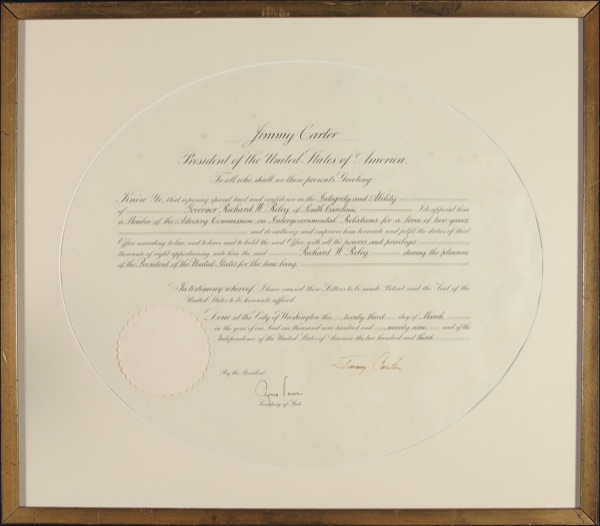 Jimmy Carter
President of the United States of America.
To all who shall see these presents, Greeting:
Know Ye, that reposing special trust and confidence in the Integrity and Ability
of Governor Richard W. Riley, of South Carolina, I do appoint him
a Member of the Advisory Commission on Intergovernmental Relations for a term of two years,
and do authorize and empower him to execute and fulfil the duties of that
Office according to law, and to have and to hold the said Office, with all the powers and privileges
thereunto of right appertaining, unto him the said Richard W. Riley, during the pleasure
of the President of the United States for the time being.
In testimony whereof, I have caused these Letters to be made Patent and the Seal of the
United States to be hereunto affixed.
Done at the City of Washington this twenty-third day of March,
in the year of our Lord one thousand nine hundred and seventy-nine and of the
Independence of the United States of America the two hundred and third.
Jimmy Carter
By the President:
Cyrus Vance
Secretary of State